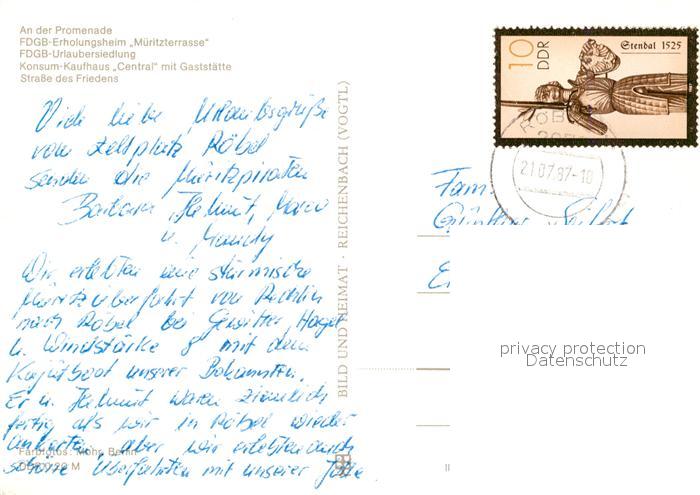 An der Promenade
FDGB-Erholungsheim „Müritzterrasse"
FDGB-Urlaubersiedlung
Konsum-Kaufhaus „Central" mit Gaststätte
Straße des Friedens
Viele liebe Urlaubsgrüße
vom Zeltplatz Röbel
senden die Müritzpiraten
Barbara, Helmut, Marco
u. Mandy
Wir erlebten eine stürmische
Müritzüberfahrt von Rechlin
nach Röbel bei Gewitter, Hagel
u. Windstärke 8 mit dem
Kajütboot unserer Bekannten.
Er u. Helmut waren ziemlich
fertig als wir in Röbel wieder
ankerten, aber wir erlebten auch
schöne Überfahrten mit unserer Jolle
Farbfotos: Mohr, Berlin
BILD UND HEIMAT · REICHENBACH (VOGTL)
10
DDR
Stendal 1525
RÖB
21.07.87-10
Fam.
Günther
privacy protection
Datenschutz